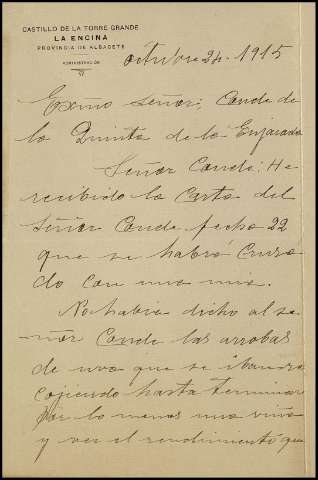 CASTILLO DE LA TORRE GRANDE
LA ENCINA
PROVINCIA DE ALBACETE
ADMINISTRACIÓN
octubre 24. 1915
Exmo Señor; Conde de
la Quinta de la Enjarada
Señor Conde: He
recibido la carta del
señor Conde fecha 22
que se habrá cruza
do con una mia.
No habia dicho al se
ñor Conde las arrobas
de uva que se iban
cojiendo hasta terminar
por lo menos una viña
y ver el rendimiento que